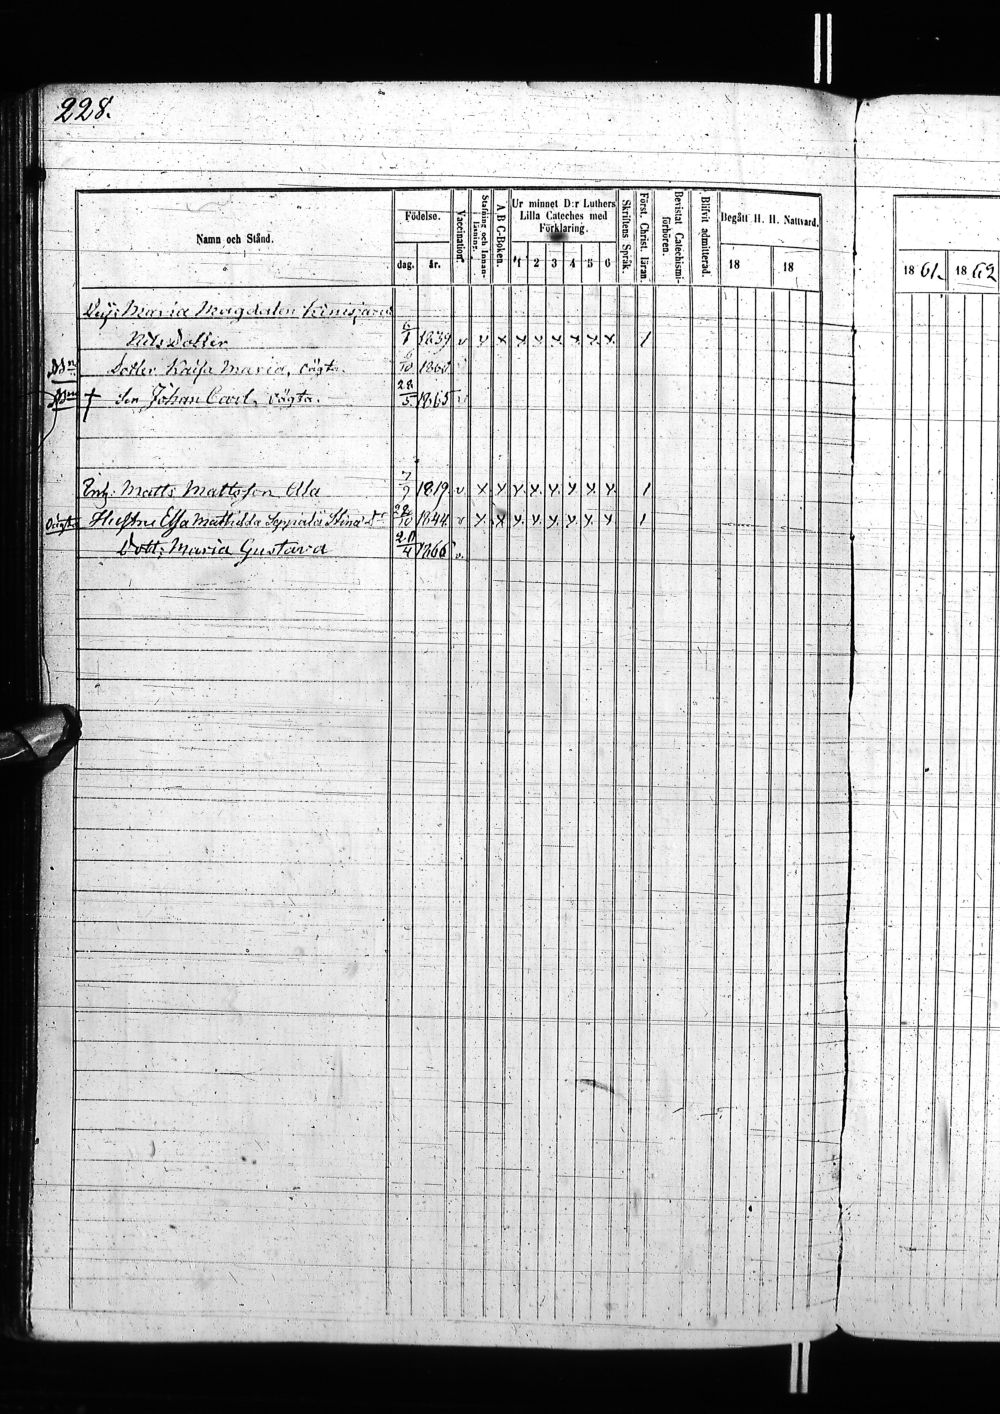 228.
Namn och Stånd.
Födelse.
dag.
år.
Vaccination.
Stafning och Innanläsning.
A B C-Boken.
Ur minnet D:r Luthers
Lilla Cateches med
Förklaring.
1 2 3 4 5 6
Skriftens Språk.
Först. Christ. läran.
Bevistat Catechismiförhören.
Blifvit admitterad.
Begått H. H. Nattvard.
18 18
18 61. 18 62
Maria Magdalen
Nils Dotter 6/1 1839 v x x x x x x x x 1
Dotter Kaisa Maria, oägta. 6/10 1860
† Son Johan Carl, oägta. 28/5 1865 v
Matts Mattsson Ala 7/9 1819 v x x x x x x x x 1
oägta Hustru Mathilda Seppälä Stina Dr 22/10 1844 v x x x x x x x x 1
Dott: Maria Gustava 20/4 1866 v.